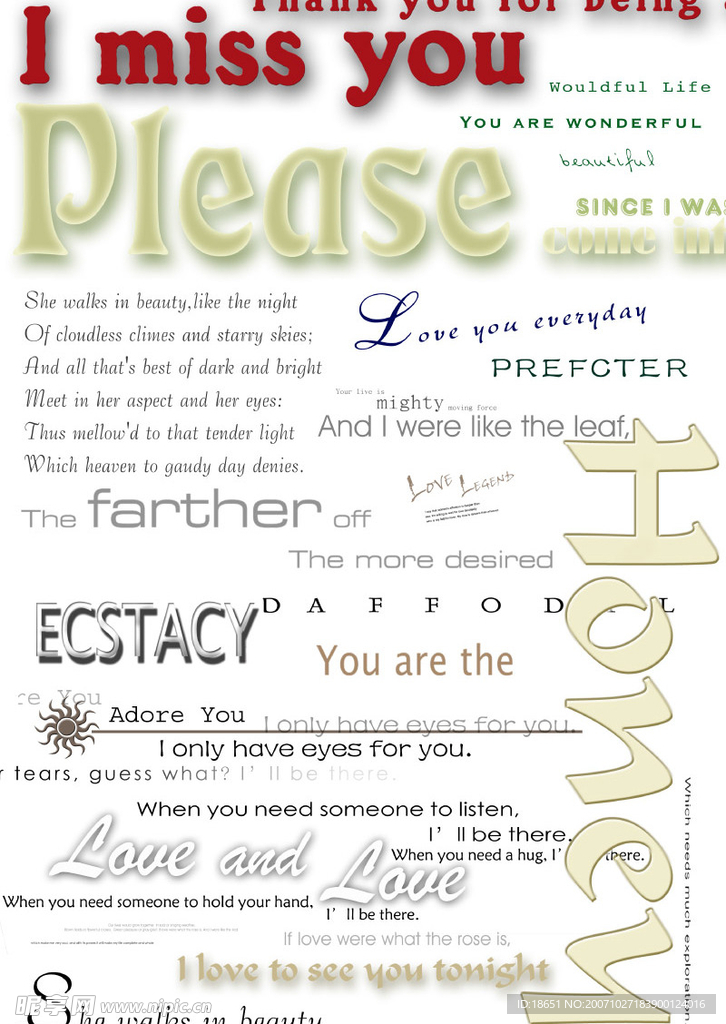 Thank you for being
I miss you
Wouldful Life
YOU ARE WONDERFUL
beautiful
Please
SINCE I WAS
come int
She walks in beauty,like the night
Of cloudless climes and starry skies;
And all that's best of dark and bright
Meet in her aspect and her eyes:
Thus mellow'd to that tender light
Which heaven to gaudy day denies.
Love you everyday
PREFCTER
Your live is
mighty moving force
And I were like the leaf,
LOVE LEGEND
The farther off
The more desired
Honey
DAFFODIL
ECSTACY
You are the
re You
Adore You
I only have eyes for you.
I only have eyes for you.
r tears, guess what? I'll be there.
When you need someone to listen,
I'll be there.
When you need a hug, I'll be there.
Love and Love
When you need someone to hold your hand,
I'll be there.
Which needs much exploration
If love were what the rose is,
I love to see you tonight
She walks in beauty
昵享网 www.nipic.cn
ID:18651 NO:20071027183900124016